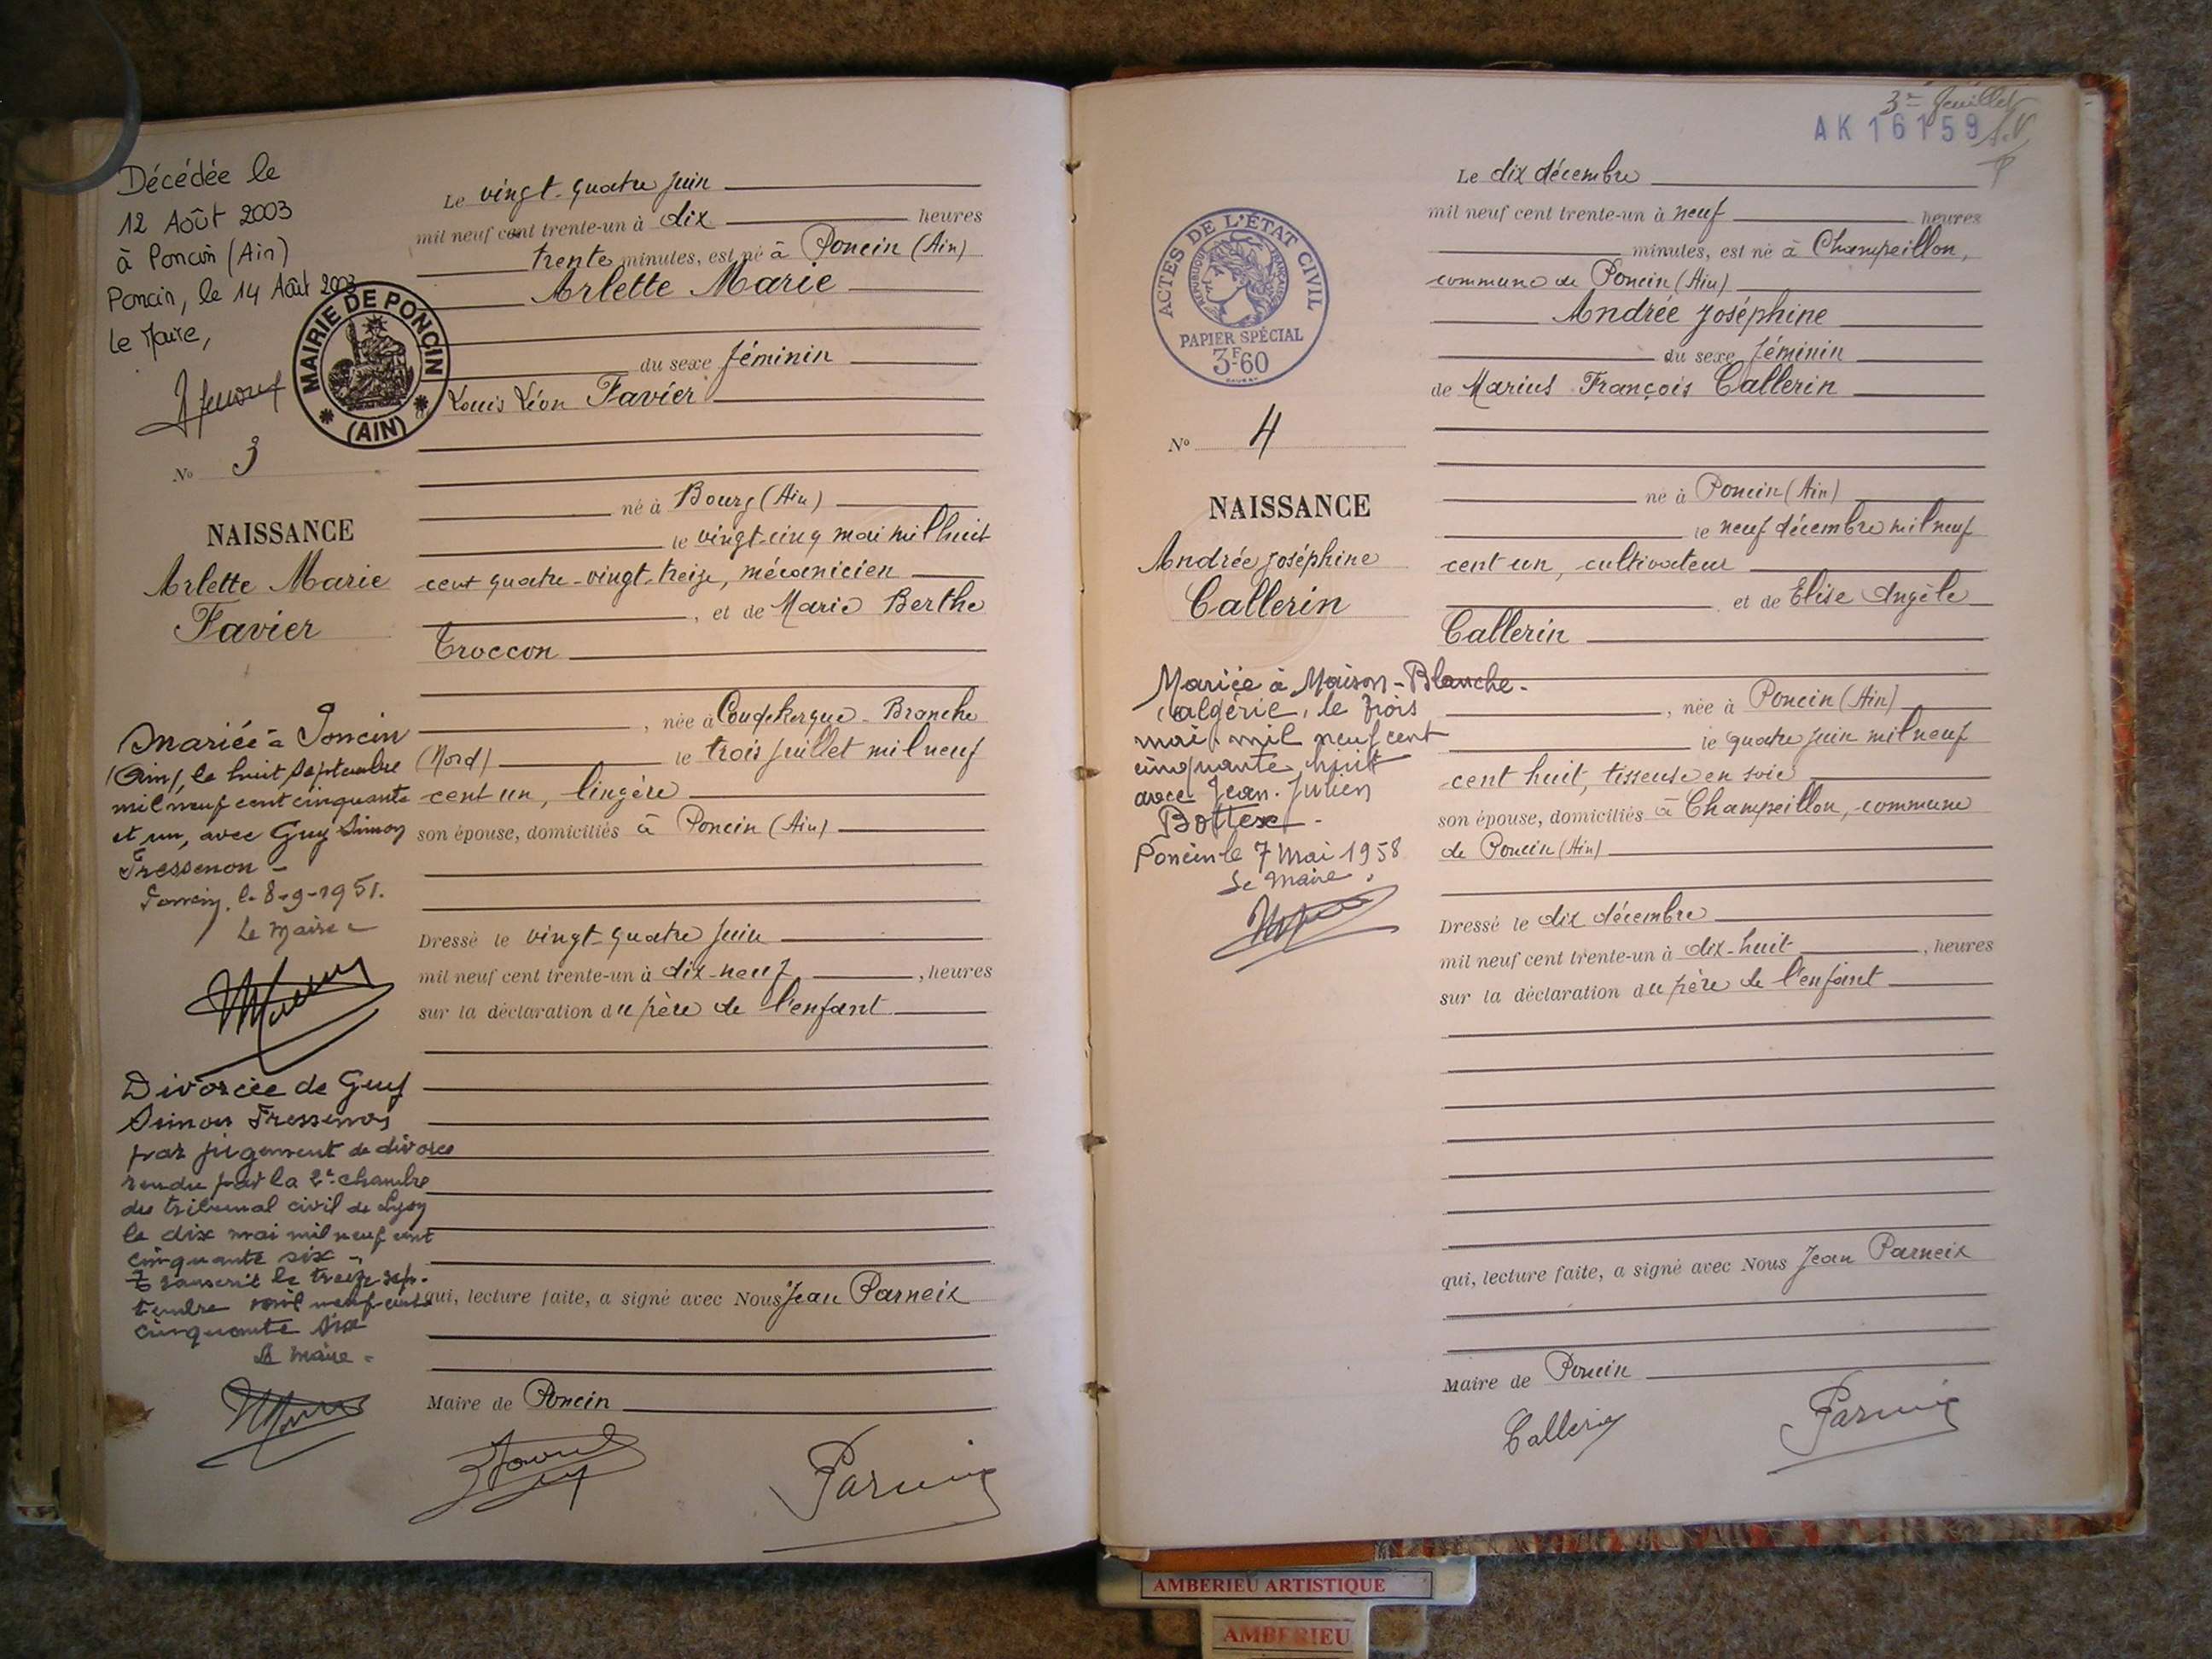 Décédée le
12 Août 2003
à Poncin (Ain)
Poncin, le 14 Août 2003
Le Maire,
MAIRIE DE PONCIN
(AIN)
No 3
NAISSANCE
Arlette Marie
Favier
Mariée à Poncin
(Ain), le huit Septembre
mil neuf cent cinquante
et un, avec Guy Simon
Fressenon -
Poncin, le 8-9-1951.
Le Maire
Divorcée de Guy
Simon Fressenon
par jugement de divorce
rendu par la 2e chambre
du tribunal civil de Lyon
le dix mai mil neuf cent
cinquante six -
Transcrit le treize sep-
tembre mil neuf cent
cinquante six
Le Maire -
Le vingt-quatre juin
mil neuf cent trente-un à dix heures
trente minutes, est né à Poncin (Ain)
Arlette Marie
du sexe féminin
Louis Léon Favier
né à Bourg (Ain)
le vingt-cinq mai mil huit
cent quatre-vingt-treize, mécanicien
, et de Marie Berthe
Troccon
, née à Coudekerque-Branche
(Nord) le trois juillet mil neuf
cent un, lingère
son épouse, domiciliés à Poncin (Ain)
Dressé le vingt-quatre juin
mil neuf cent trente-un à dix-neuf , heures
sur la déclaration du père de l'enfant
qui, lecture faite, a signé avec Nous Jean Parneix
Maire de Poncin
Parneix
3e feuillet
AK 16159
ACTES DE L'ÉTAT CIVIL
RÉPUBLIQUE FRANÇAISE
PAPIER SPÉCIAL
3F60
No 4
NAISSANCE
Andrée Joséphine
Callerin
Mariée à Maison-Blanche-
(Algérie, le trois
mai mil neuf cent
cinquante huit
avec Jean-Julien
Bottex -
Poncin le 7 Mai 1958
Le Maire,
Le dix décembre
mil neuf cent trente-un à neuf heures
minutes, est né à Champeillon,
commune de Poncin (Ain)
Andrée Joséphine
du sexe féminin
de Marius François Callerin
né à Poncin (Ain)
le neuf décembre mil neuf
cent un, cultivateur
et de Elise Angèle
Callerin
, née à Poncin (Ain)
le quatre juin mil neuf
cent huit, tisseuse en soie
son épouse, domiciliés à Champeillon, commune
de Poncin (Ain)
Dressé le dix décembre
mil neuf cent trente-un à dix-huit , heures
sur la déclaration du père de l'enfant
qui, lecture faite, a signé avec Nous Jean Parneix
Maire de Poncin
Callerin
Parneix
AMBERIEU ARTISTIQUE
AMBERIEU